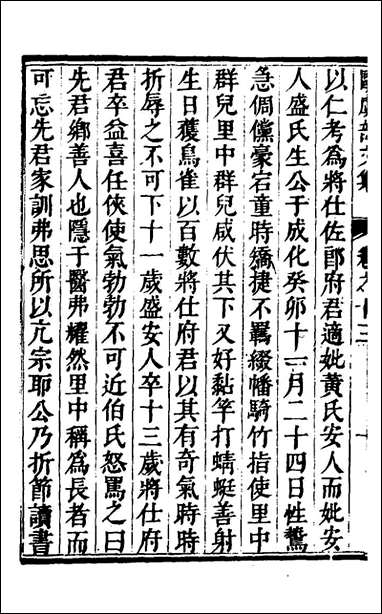 以仁考爲將仕佐郎府君適妣黃氏安人而妣安
人盛氏生公于成化癸卯十一月二十四日性驁
急倜儻豪宕童時矯捷不羈綴幡騎竹指使里中
群兒里中群兒咸伏其下又好黏竿打蜻蜓善射
生日獲鳥雀以百數將仕府君以其有奇氣時時
折辱之不可下十一歲盛安人卒十三歲將仕府
君卒益喜任俠使氣勃勃不可近伯氏怒罵之曰
先君鄉善人也隱于醫弗耀然里中稱爲長者而
可忘先君家訓弗思所以亢宗耶公乃折節讀書